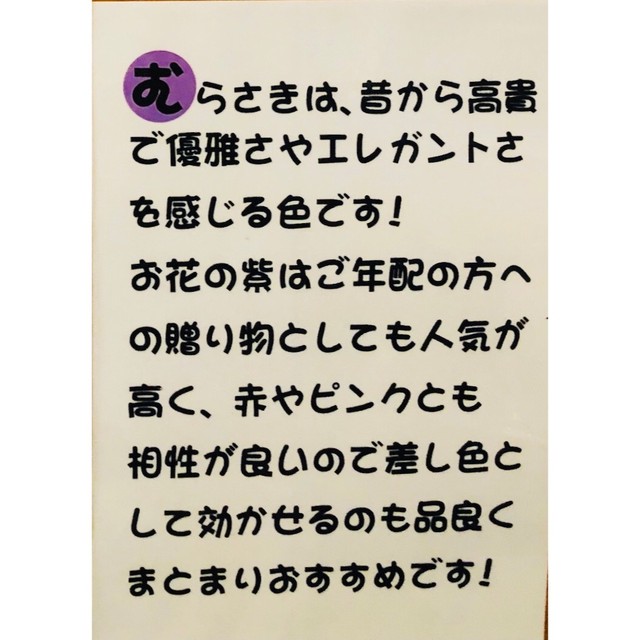 むらさきは、昔から高貴
で優雅さやエレガントさ
を感じる色です!
お花の紫はご年配の方へ
の贈り物としても人気が
高く、赤やピンクとも
相性が良いので差し色と
して効かせるのも品良く
まとまりおすすめです!